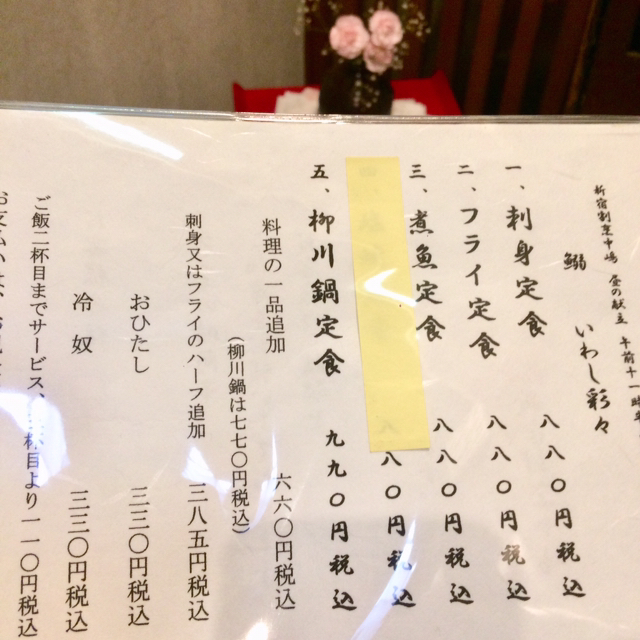 新宿割烹中嶋 昼の献立 午前十一時半
鰯 いわし彩々
一、刺身定食 八八〇円税込
二、フライ定食 八八〇円税込
三、煮魚定食 八八〇円税込
八八〇円税込
五、柳川鍋定食 九九〇円税込
料理の一品追加 六六〇円税込
(柳川鍋は七七〇円税込)
刺身又はフライのハーフ追加 三八五円税込
おひたし 三三〇円税込
冷奴 三三〇円税込
ご飯二杯目までサービス、 杯目より一一〇円税込
お支払いは、